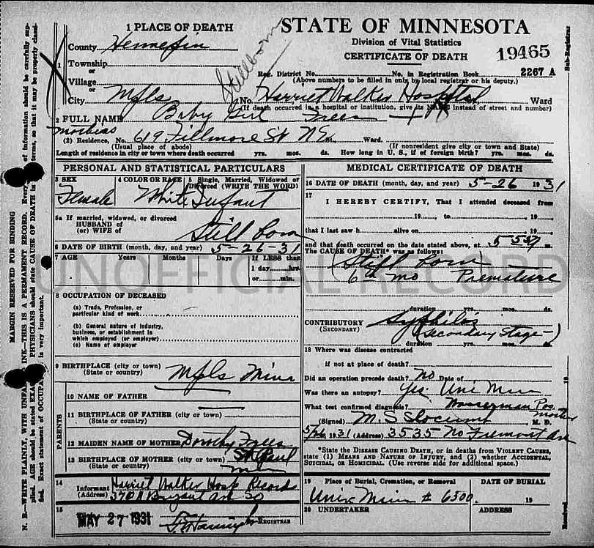 1 PLACE OF DEATH
STATE OF MINNESOTA
Division of Vital Statistics
CERTIFICATE OF DEATH
19465
County Hennepin
Stillborn
Township
Village
Reg. District No. No. in Registration Book 2267 A
(Above numbers to be filled in only by local registrar or his deputy.)
City Mpls Harriet Walker Hospital Ward
(If death occurred in a hospital or institution, give its NAME instead of street and number)
2 FULL NAME Baby Girl
(2) Residence, No. 619 Fillmore St NE Ward.
(Usual place of abode) (If nonresident give city or town and State)
Length of residence in city or town where death occurred yrs. mos. ds. How long in U. S., if of foreign birth? yrs. mos. ds.
PERSONAL AND STATISTICAL PARTICULARS
3 SEX
4 COLOR OR RACE
5 Single, Married, Widowed or Divorced (WRITE THE WORD)
Female White Infant
5a If married, widowed, or divorced
HUSBAND of
(or) WIFE of
Still born
6 DATE OF BIRTH (month, day, and year) 5-26-31
7 AGE Years Months Days If LESS than
1 day, hrs.
or min.
8 OCCUPATION OF DECEASED
(a) Trade, Profession, or
particular kind of work
(b) General nature of industry,
business, or establishment in
which employed (or employer)
(c) Name of employer
9 BIRTHPLACE (city or town) Mpls Minn
(State or country)
PARENTS
10 NAME OF FATHER
11 BIRTHPLACE OF FATHER (city or town)
(State or country)
12 MAIDEN NAME OF MOTHER Dorothy
13 BIRTHPLACE OF MOTHER (city or town) St Paul
(State or country) Minn
14
Informant Harriet Walker Hosp Record
(Address) Bryant Ave So
15
MAY 27 1931
REGISTRAR
MEDICAL CERTIFICATE OF DEATH
16 DATE OF DEATH (month, day, and year) 5-26 1931
17
I HEREBY CERTIFY, That I attended deceased
from 19 to 19
that I last saw h alive on 19
and that death occurred on the date stated above, at
The CAUSE OF DEATH* was as follows:
Still born
6th mo Premature
duration yrs. mos. ds.
CONTRIBUTORY Syphilis
(SECONDARY) (secondary stage)
duration yrs. mos. ds.
18 Where was disease contracted
if not at place of death?
Did an operation precede death? No Date of
Was there an autopsy? Yes Uni Minn
What test confirmed diagnosis? Wasserman Pos mother
(Signed) M. S. Slocumb M. D.
1931 (Address) 3535 No Fremont Ave
*State the DISEASE CAUSING DEATH, or in deaths from VIOLENT CAUSES,
state (1) MEANS AND NATURE OF INJURY, and (2) whether ACCIDENTAL,
SUICIDAL, or HOMICIDAL. (Use reverse side for additional space.)
19 Place of Burial, Cremation, or Removal DATE OF BURIAL
Univ Minn # 6300 19
20 UNDERTAKER ADDRESS
MARGIN RESERVED FOR BINDING
UNOFFICIAL RECORD